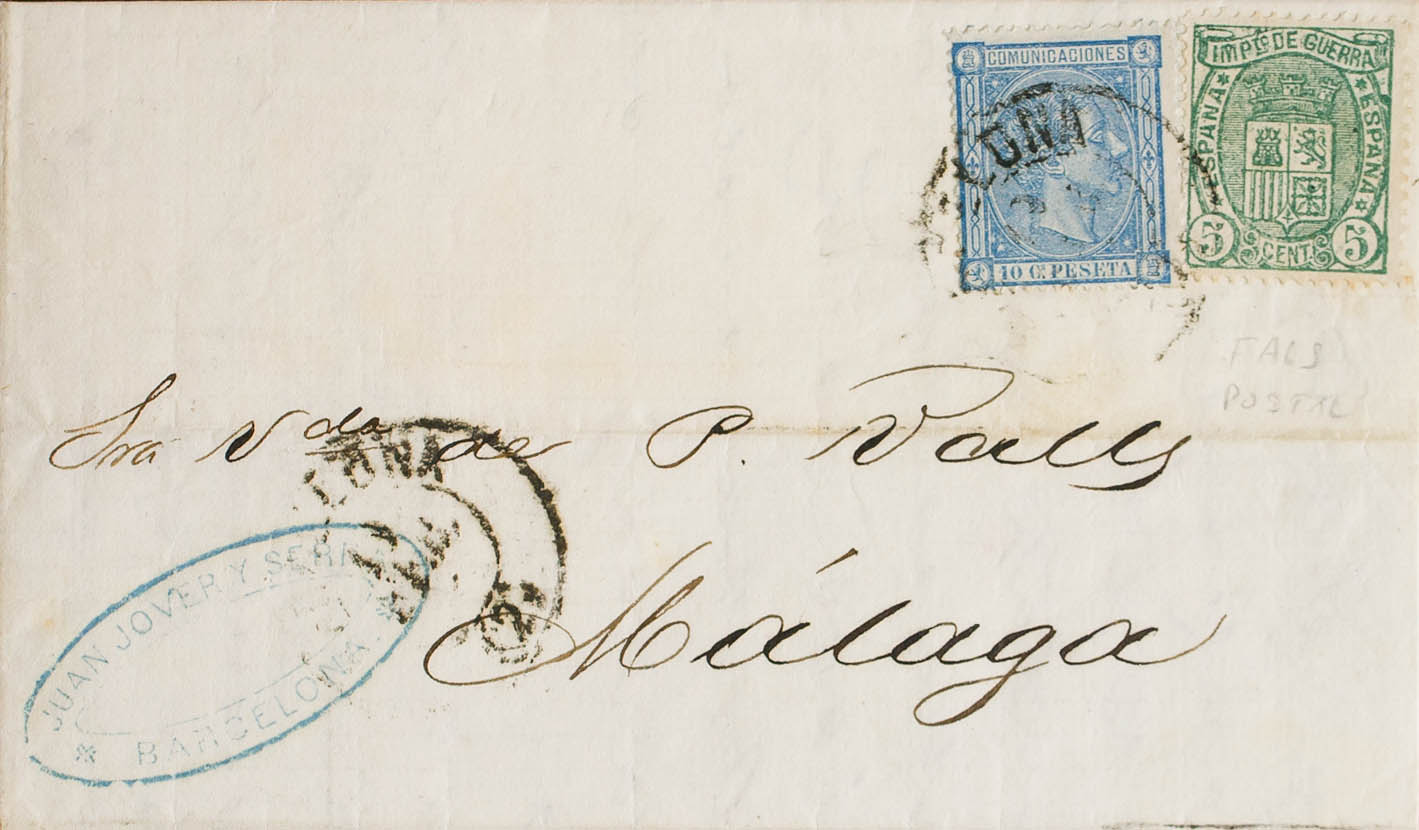 COMUNICACIONES
10 Cs PESETA
IMPTO. DE GUERRA
ESPAÑA ESPAÑA
5 CENT. 5
LONA
FALS
POSTAL
Sra Vda de P. Valls
Málaga
LONA
JUAN JOVER Y SERRA
BARCELONA